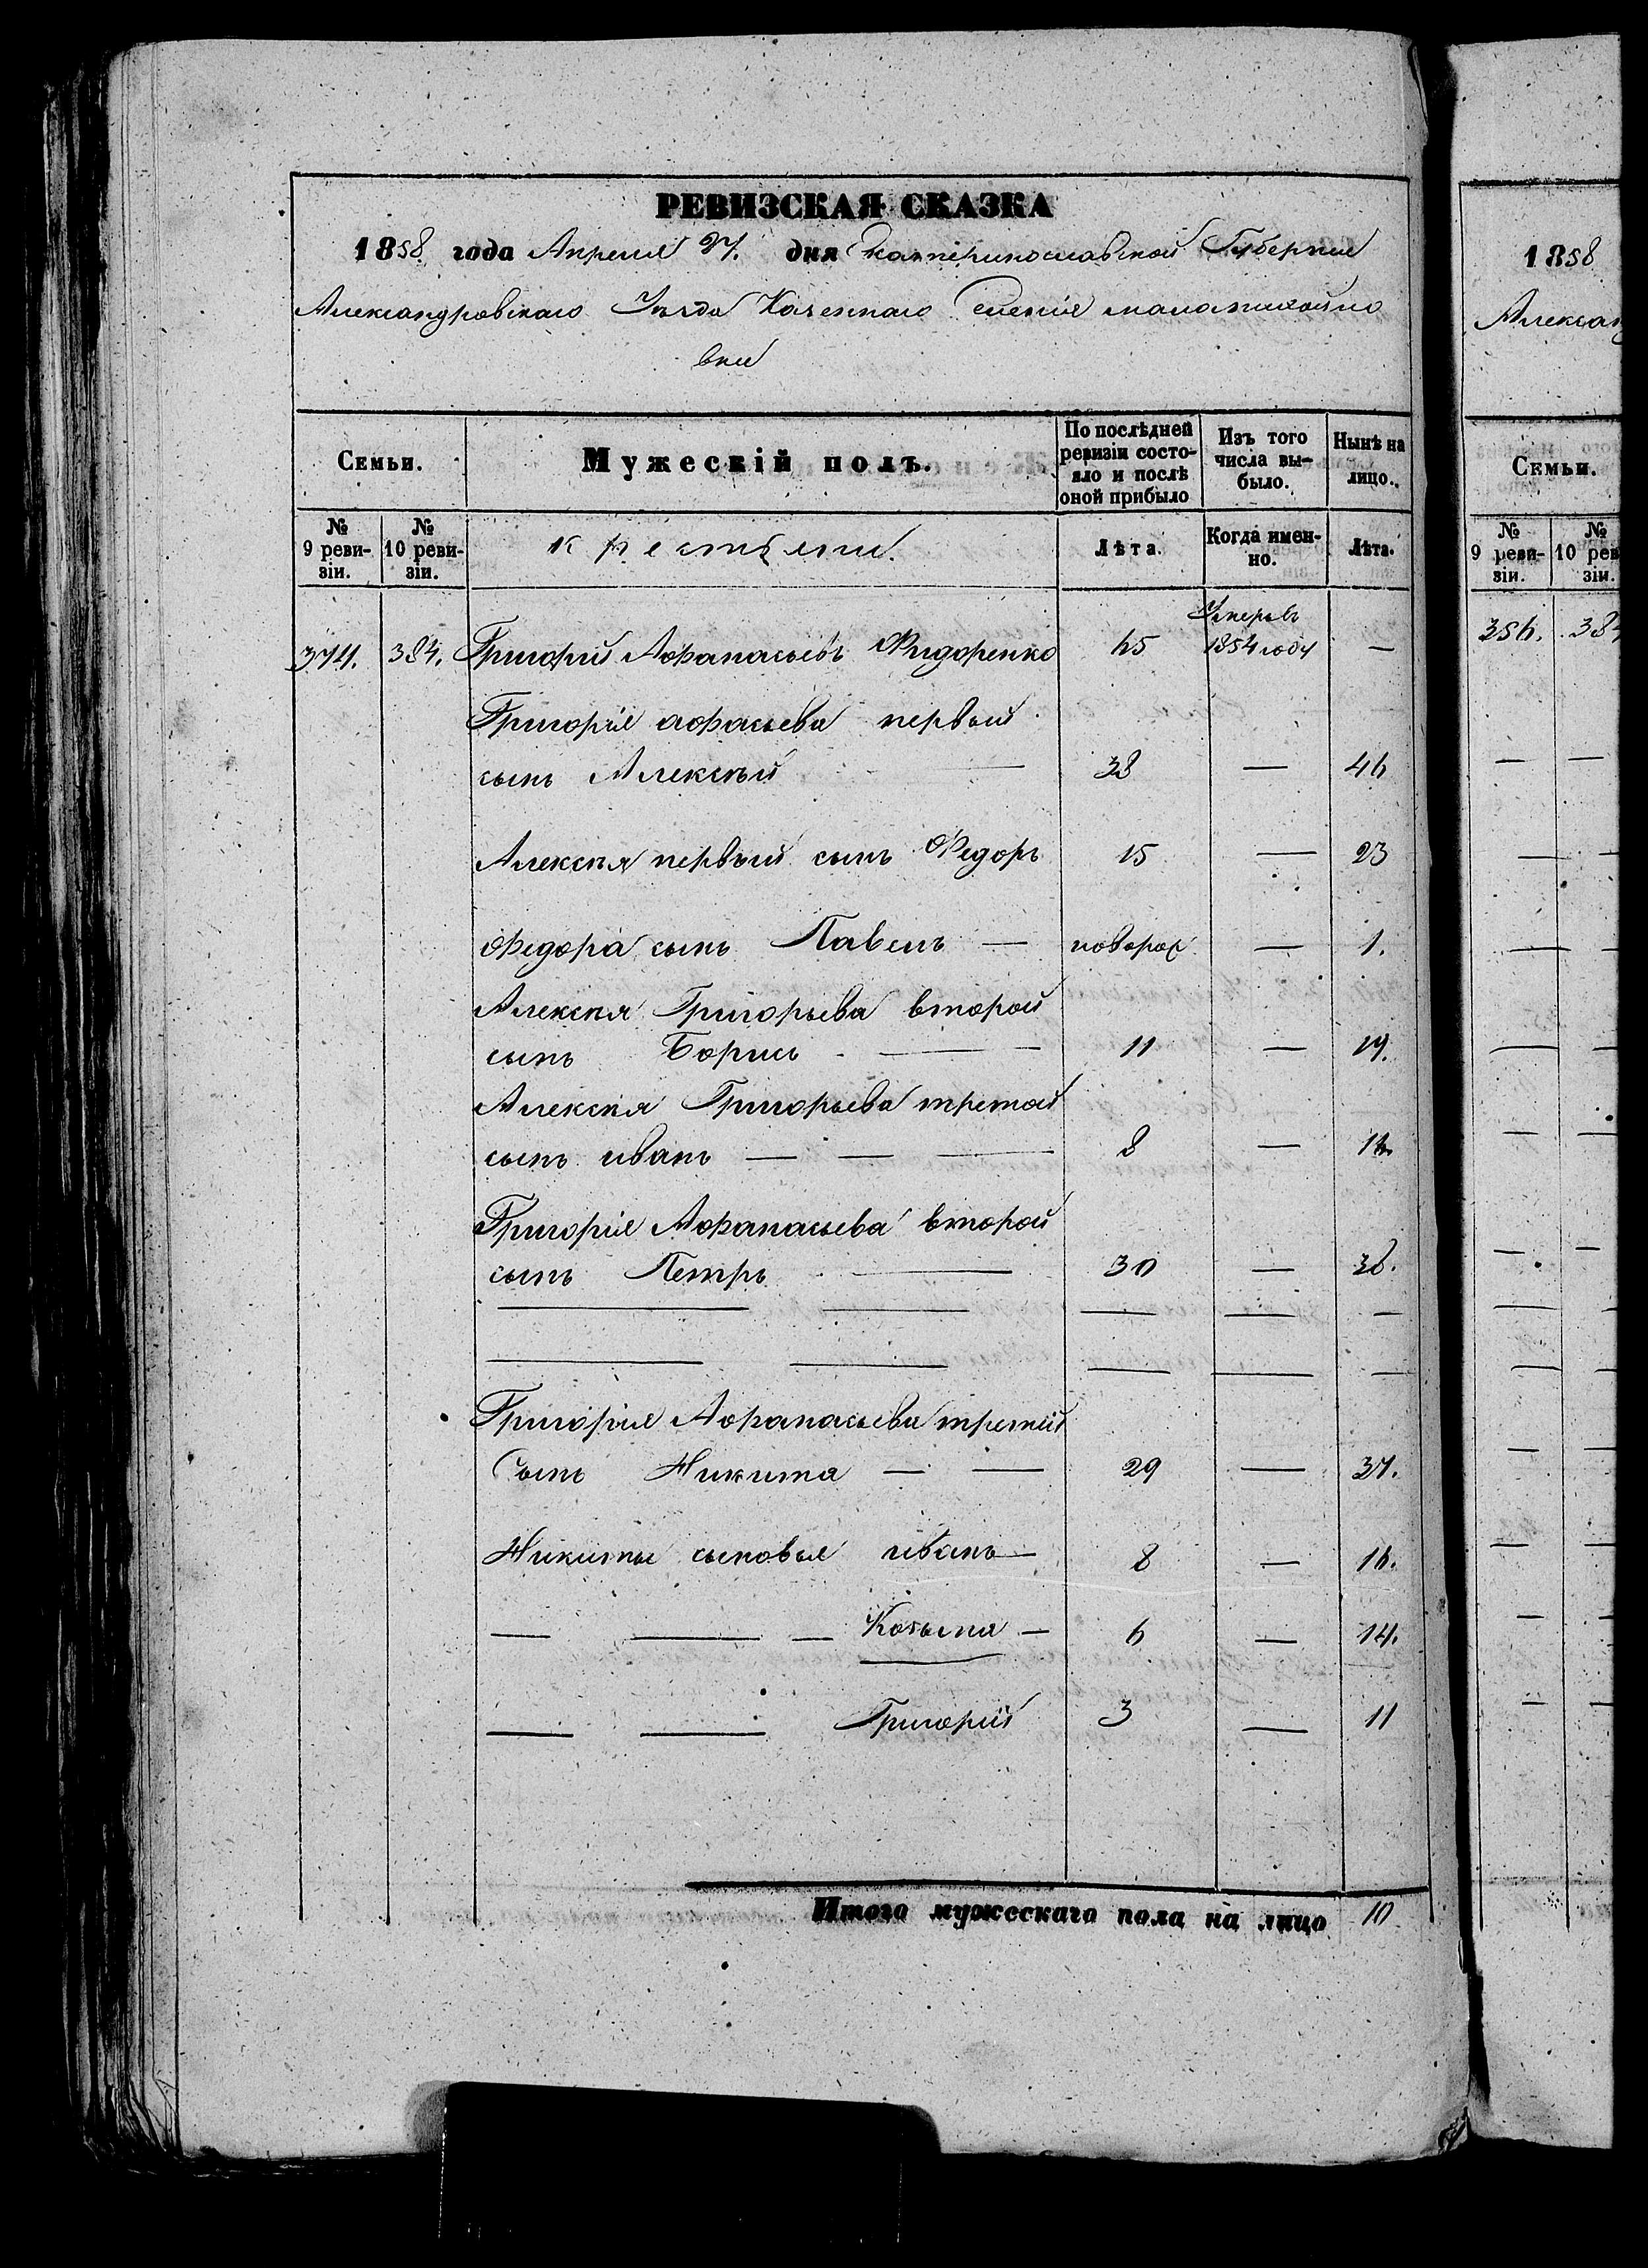 РЕВИЗСКАЯ СКАЗКА
1858 года Апреля 27. дня Екатеринославской Губернии
Александровскаго Уезда Казеннаго Селенія маломихайло
вки
Семьи.
Мужескій полъ.
По послѣдней ревизіи состо-яло и послѣ оной прибыло
Изъ того числа вы-было.
Нынѣ на лицо.
№ 9 реви-зіи.
№ 10 реви-зіи.
крестьяни.
Лѣта.
Когда имен-но.
Лѣта.
Умеръ въ
374. 384. Григорий Афанасьевъ Фидоренко 65 1854 году —
Григорія афасьева первый
сынъ Алексѣй — 38 — 46
Алексѣя первый сынъ Федоръ 15 — 23
Федора сынъ Павелъ — новорож — 1.
Алексѣя Григорьева второй
сынъ Борисъ — — 11 — 19.
Алексѣя Григорьева третой
сынъ иванъ — — — 8 — 16
Григорія Афанасьева второй
сынъ Петръ — 30 — 38.
— — — — —
— — — — —
Григорія Афанасьева третій
Сынъ Никита — — 29 — 37.
Никиты сыновья иванъ — 8 — 16.
— — — Козьма — 6 — 14.
— — Григорій 3 — 11
Итого мужескаго пола на лицо 10
1858
Александ
Семьи.
№ 9 реви-зіи.
№ 10 рев зіи.
356. 38